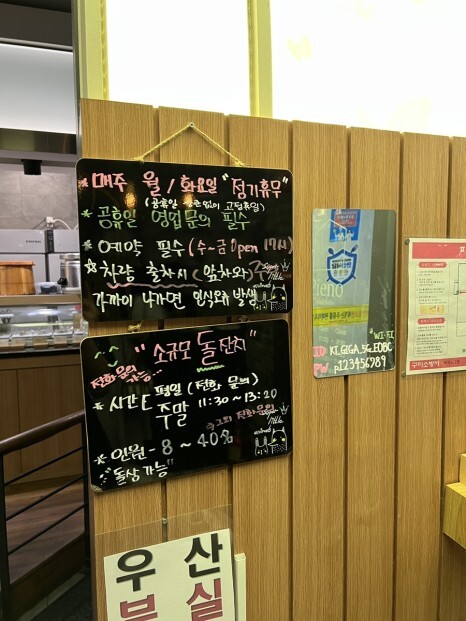 * 매주 월 / 화요일 "정기휴무"
(공휴일 상관없이 고정휴일)
* 공휴일 영업문의 필수
* 예약 필수 (수~금 Open 17시)
차량 출차시 (앞차와)
가까이 나가면 인식오류 발생
"소규모 돌잔치"
전화문의
* 시간 평일 (전화 문의)
주말 11:30 ~ 13:20
* 인원 - 8 ~ 40名
"돌상가능"
"WI-FI
ID KT_GIGA_5G_E0BC
PW 123456789
우산
분실